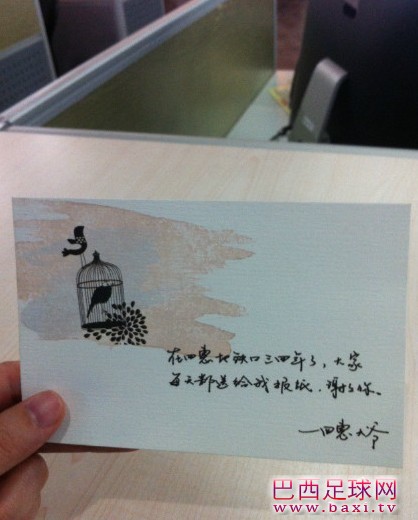 在四惠地铁口三四年了，大家
每天都送给我报纸．谢谢你。
—四惠大爷
巴西足球网
www.baxi.tv